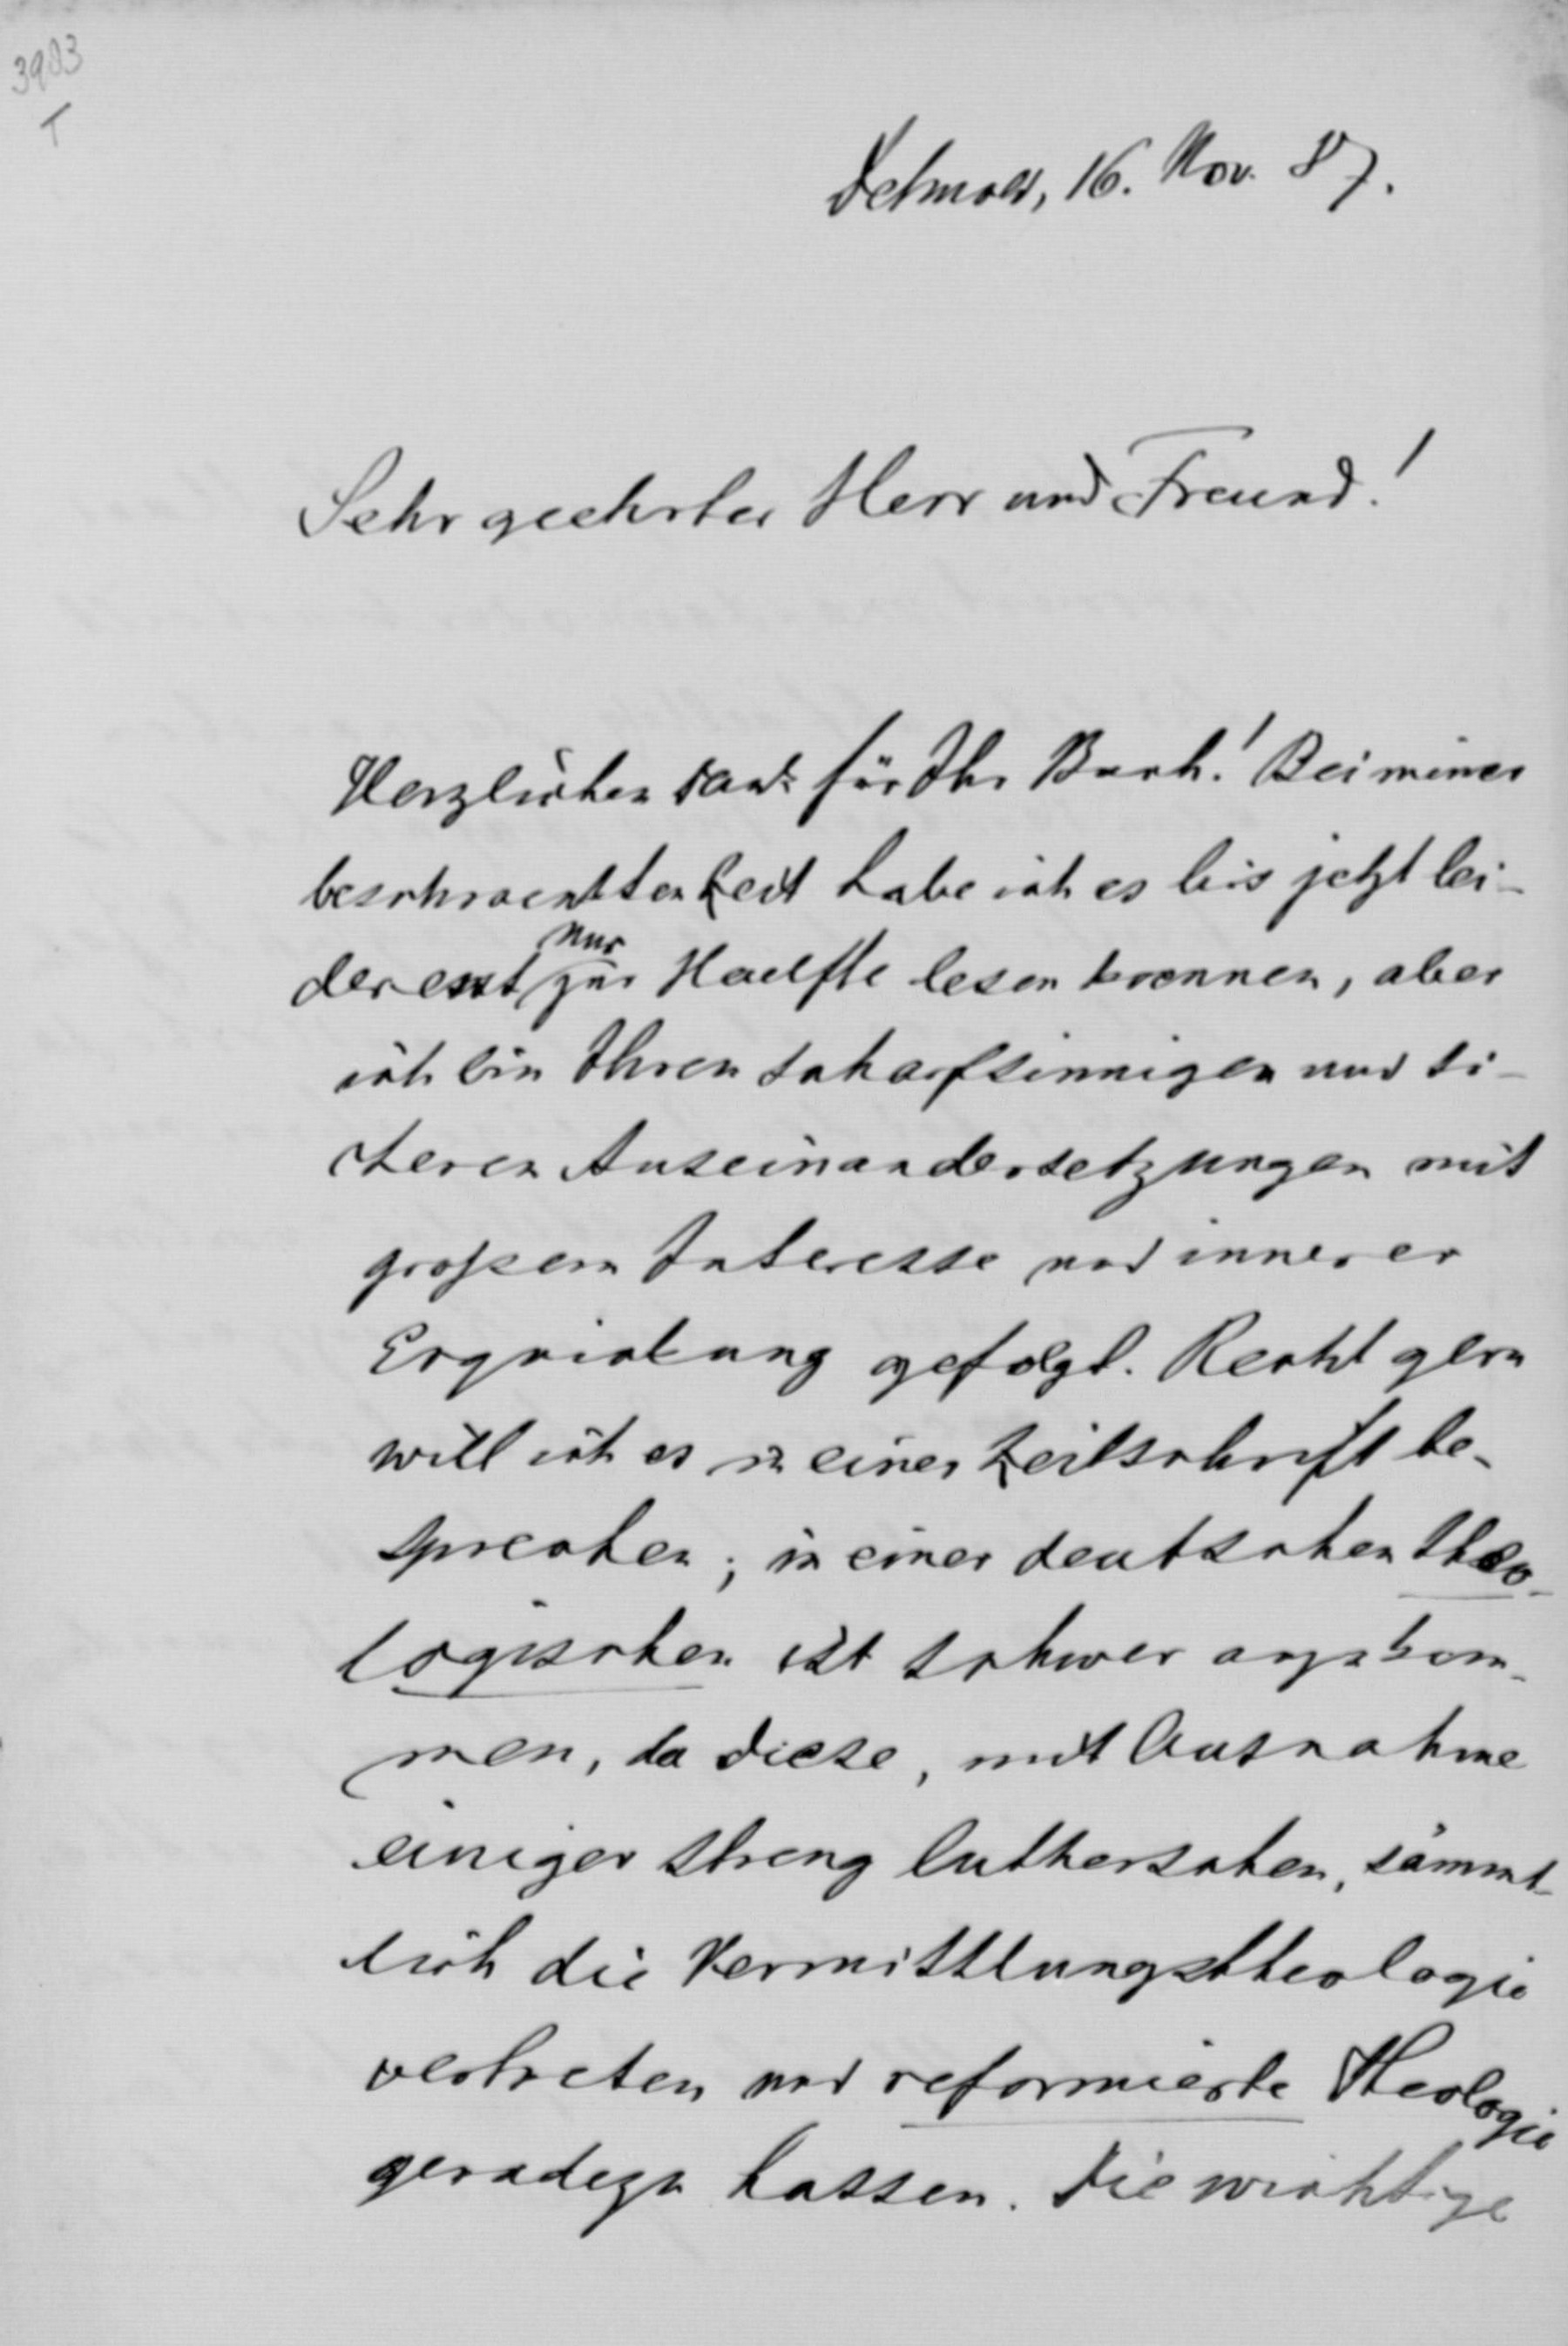 3983
T
Detmold, 16. Nov. 87.
Sehr geehrter Herr und Freund!
Herzlichen Dank für Ihr Buch! Bei meiner
beschraenkten Zeit habe ich es bis jetzt lei-
der erst nur zur Haelfte lesen koennen, aber
ich bin Ihren scharfsinnigen und si-
cheren Auseinandersetzungen mit
großem Interesse und innerer
Erquickung gefolgt. Recht gern
will ich es in einer Zeitschrift be-
sprechen; in einer deutschen theo-
logischen ist schwer anzukom-
men, da diese, mit Ausnahme
einiger streng lutherschen, sämmt-
lich die Vermittlungstheologie
vertreten und reformierte Theologie
geradezu hassen. Die wichtige